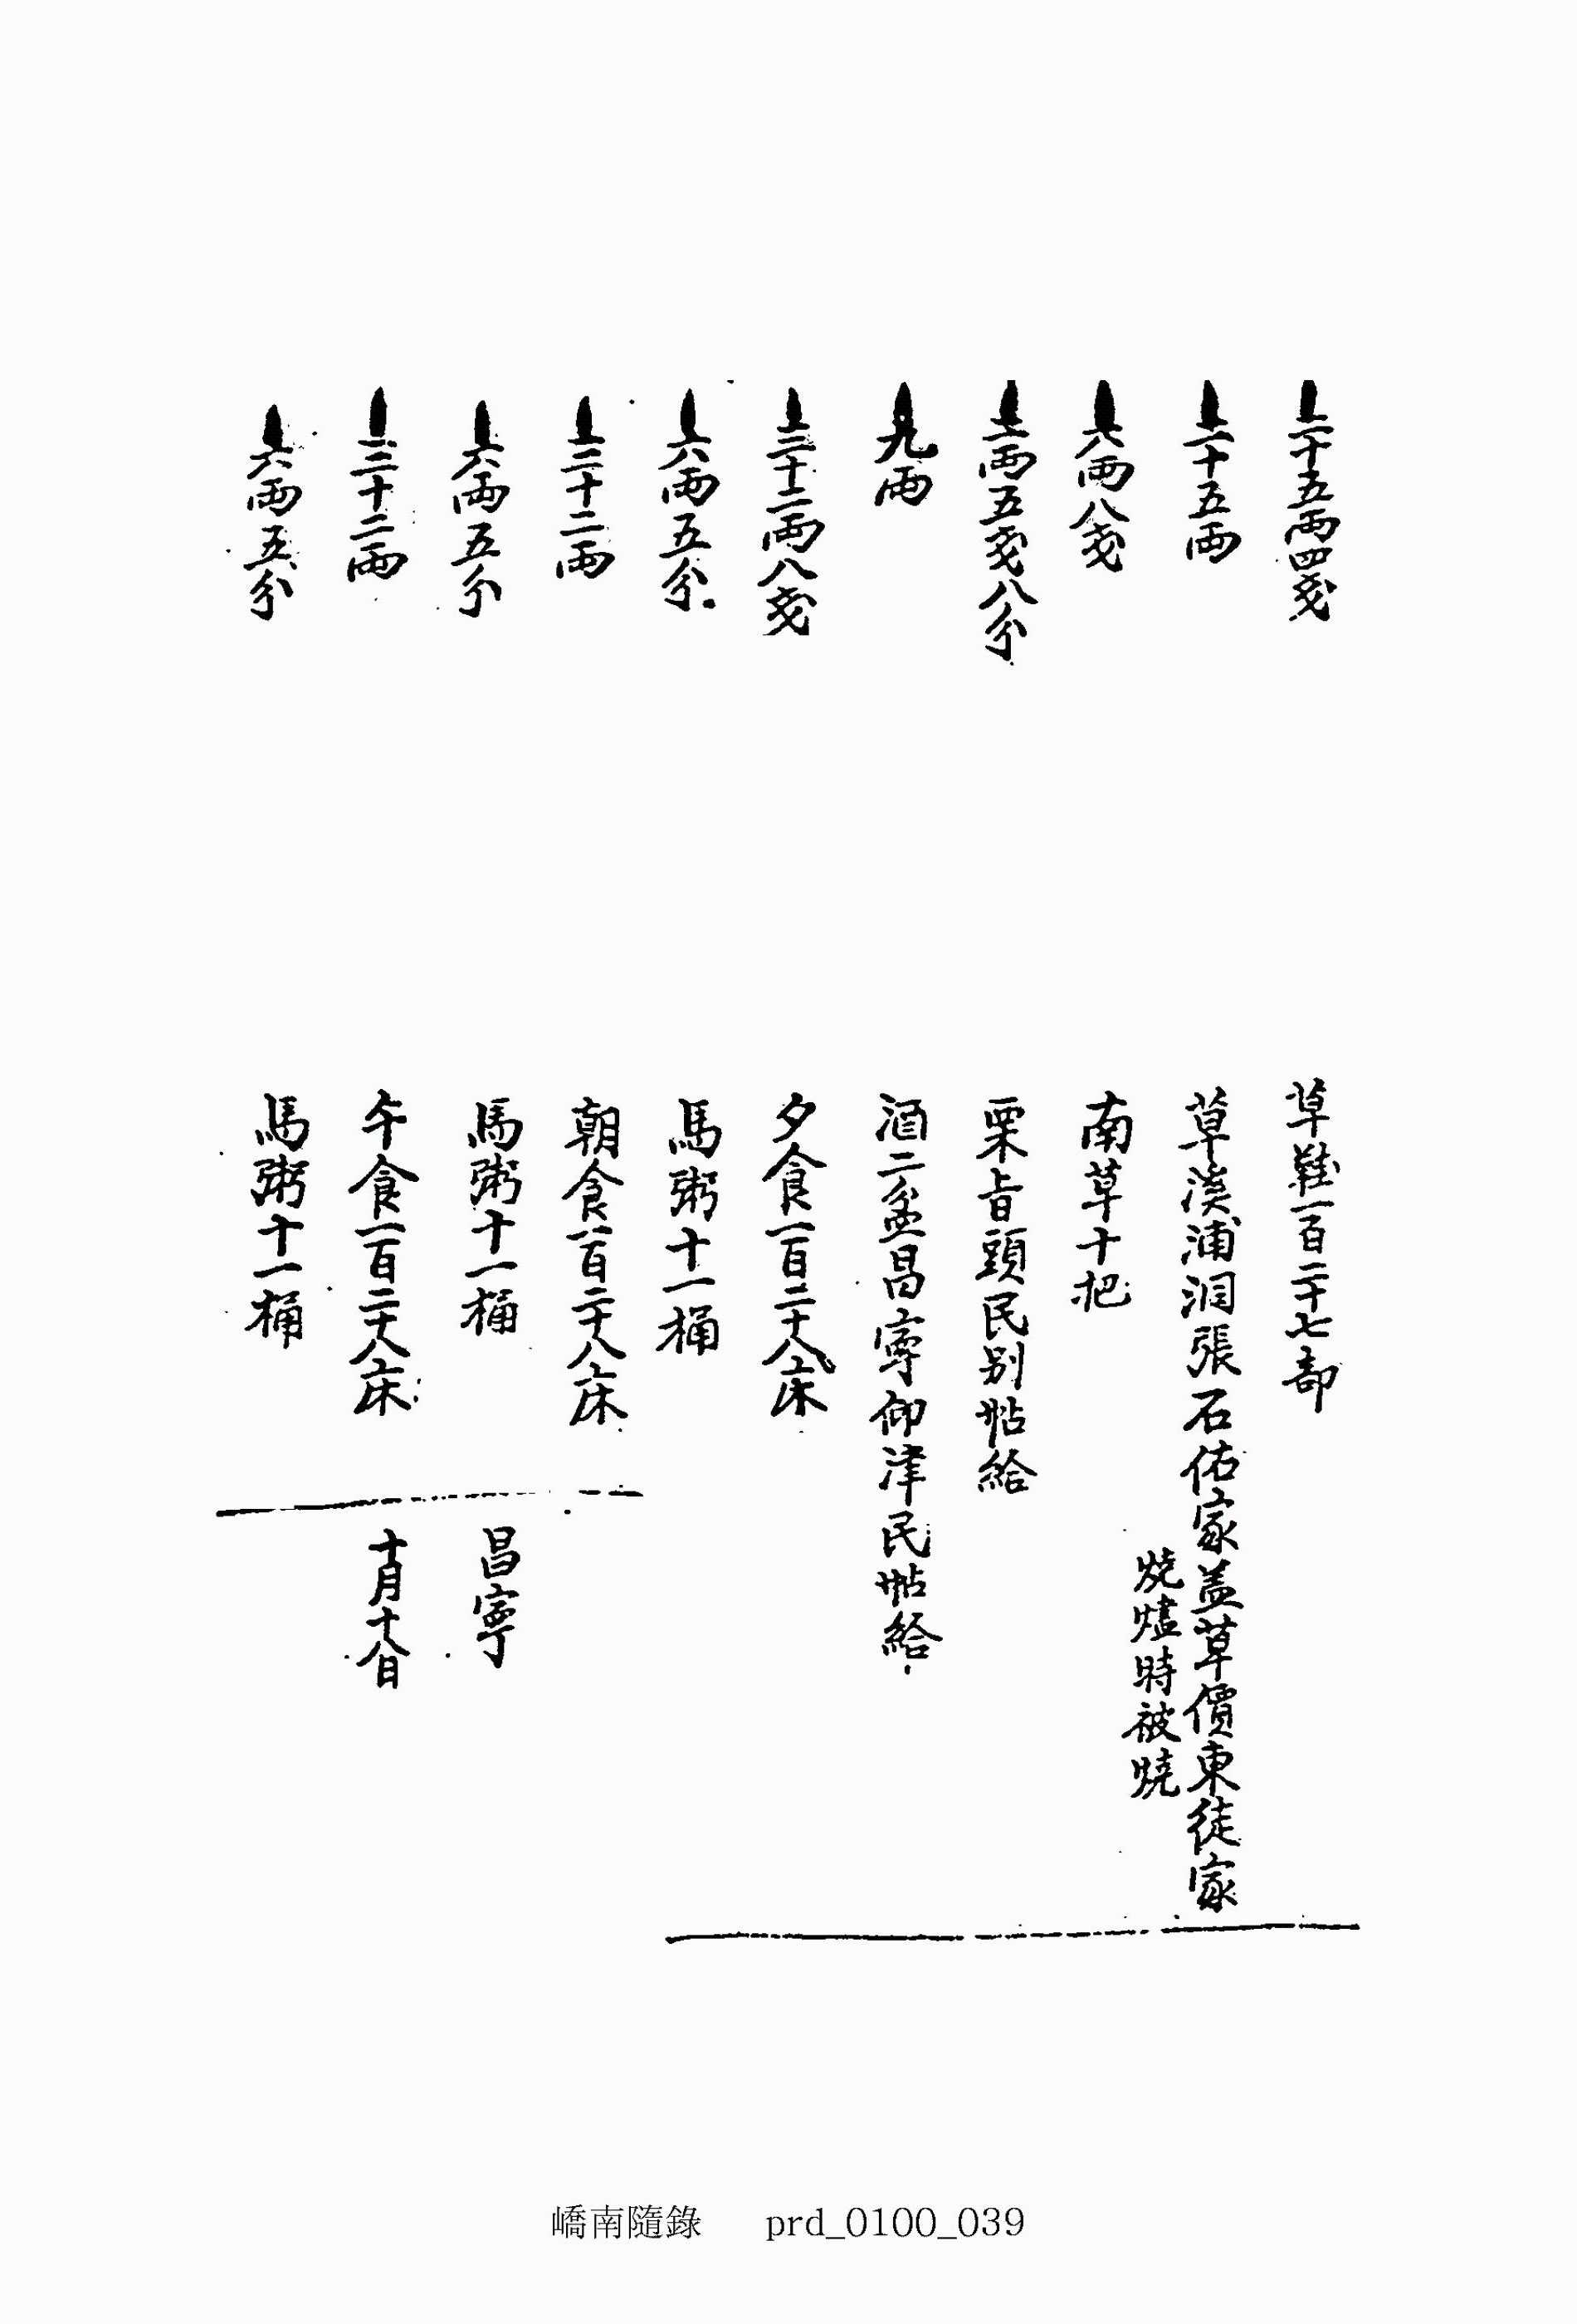 二十五兩四戔
草鞋一百二十七部
二十五兩
草溪浦洞張石佑家盖草價東徒家
燒燼時被燒
八兩八戔
南草十把
兩五戔八分
栗旨頭民别帖給
九兩
酒二盆昌寧仰津民帖給
三十二兩八戔
夕食一百二十八床
六兩五分
馬粥十一桶
三十二兩
朝食一百二十八床
六兩五分
馬粥十一桶
昌寧
三十二兩
午食一百二十八床
十月十八日
六兩五分
馬粥十一桶
嶠南隨錄 prd_0100_039